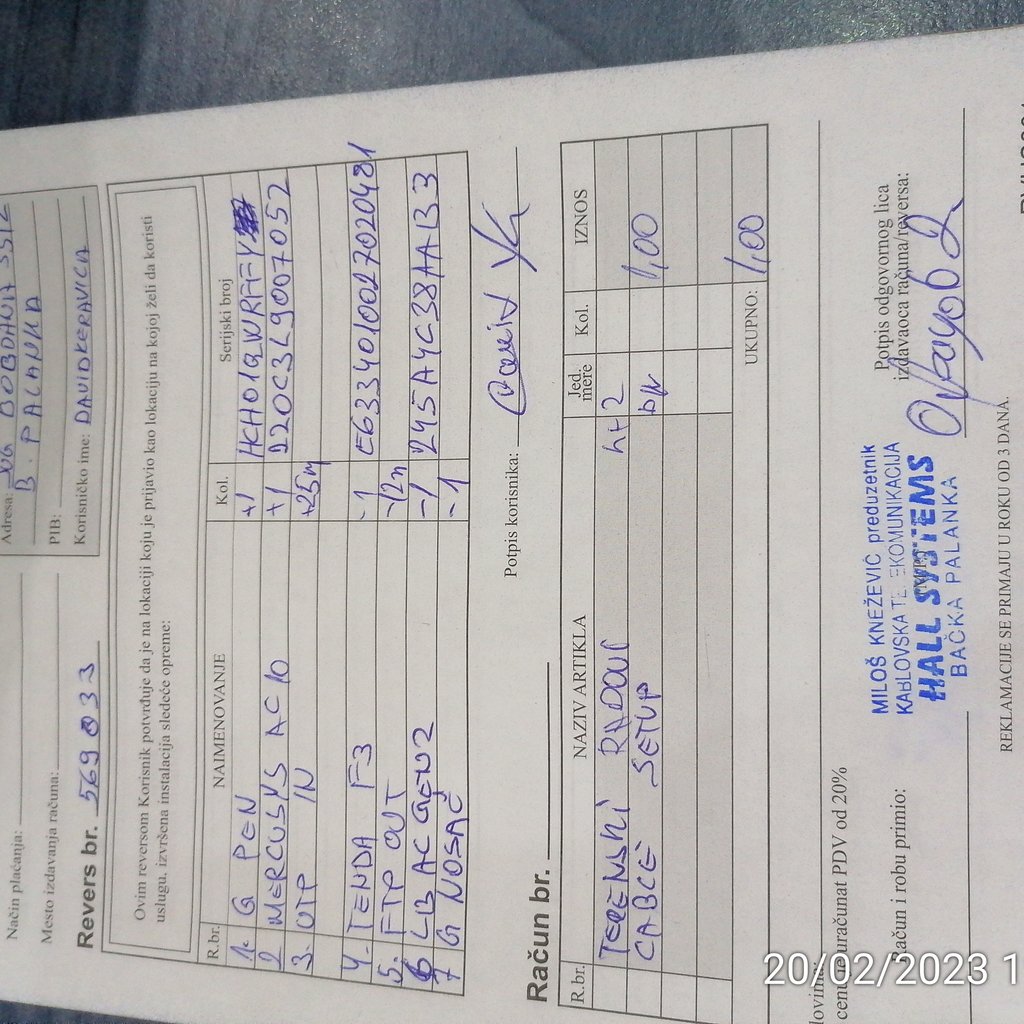 Način plaćanja:
Mesto izdavanja računa:
Revers br. 569033
Adresa: BOBDANA 331Z
B. PALANKA
PIB:
Korisničko ime: DAVIDKERAVICA
Ovim reversom Korisnik potvrđuje da je na lokaciji koju je prijavio kao lokaciju na kojoj želi da koristi
uslugu, izvršena instalacija sledeće opreme:
R.br. NAIMENOVANJE Kol. Serijski broj
1. G PEN +1
2 MERCUSYS AC10 +1 220C3L9007052
3. UTP IN +25m
4. TENDA F3 -1 E6334010027020481
5. FTP OUT
6 LB AC GEN2 -1 245A4C38AAB3
7 G NOSAČ -1
Potpis korisnika:
Račun br.
R.br. NAZIV ARTIKLA Jed. mere Kol. IZNOS
TERENSKI RADOVI h+2 1,00
CABCE SETUP
UKUPNO: 1,00
cenu uračunat PDV od 20%
Račun i robu primio:
MILOŠ KNEŽEVIĆ preduzetnik
KABLOVSKA TELEKOMUNIKACIJA
HALL SYSTEMS
BAČKA PALANKA
Potpis odgovornog lica
izdavaoca računa/reversa:
REKLAMACIJE SE PRIMAJU U ROKU OD 3 DANA.
20/02/2023 1